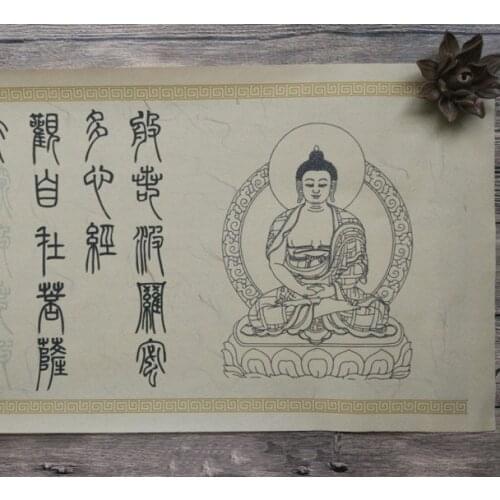 般若波羅密
多心經
觀自在菩薩